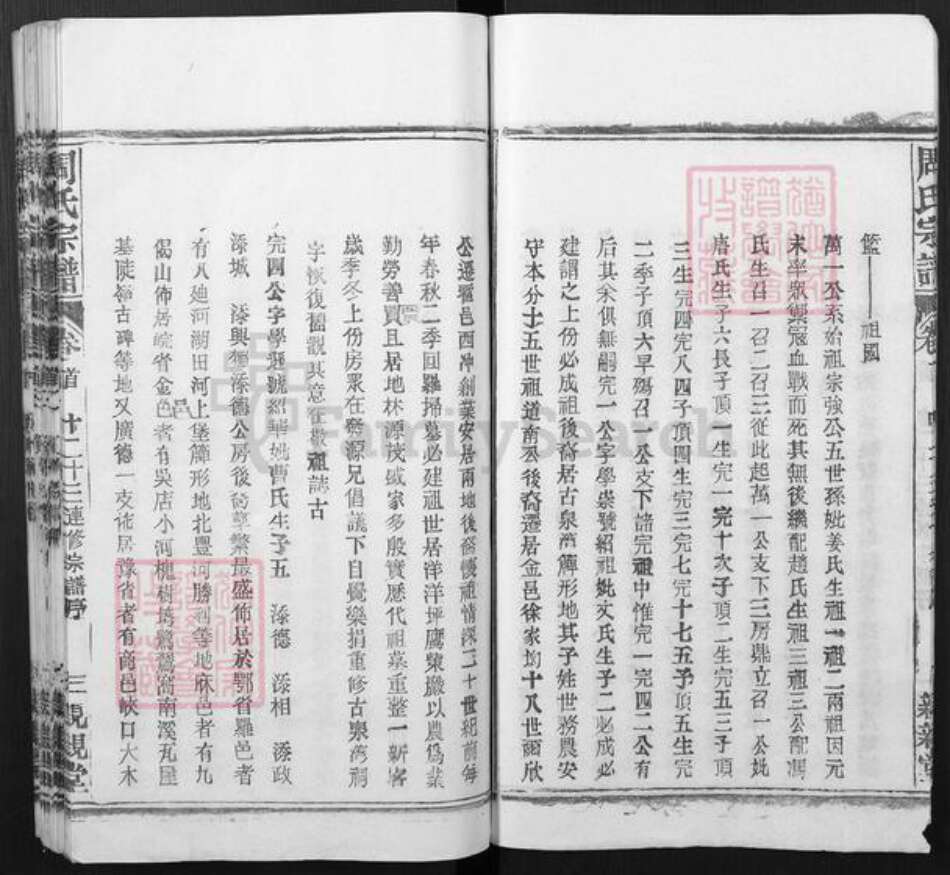 周氏宗譜
籃——祖國
萬一公系始祖宗強公五世孫妣姜氏生祖一祖二兩祖因元
末半眾禦寇血戰而死其無後繼配趙氏生祖三祖三公配馮
氏生召一召二召三從此起萬一公支下三房鼎立召一公妣
唐氏生子六長子頂一生完一完十次子頂二生完五三子頂
三生完四完八四子頂四生完三完七完十七五子頂五生完
二季子頂六早殤召一公支下諸完祖中惟完一完四二公有
后其余俱無嗣完一公字學崇號紹祖妣文氏生子二必成必
建謂之上份必成祖後裔居古泉灣簰形地其子姓世務農安
守本分十五世祖道南公後裔遷居金邑徐家均十八世爾欣
公遷霍邑西冲創業安居兩地後裔懷祖情深二十世紀前每
年春秋二季回羅掃墓必建祖世居徉洋坪鷹柴嚴以農為業
勤勞善賈且居地林源茂盛家多殷實歷代祖墓重整一新客
歲季冬上份房眾在黎源兄倡議下自覺樂捐重修古泉灣祠
宇恢復舊觀其意在敬祖誌古
完四公字學遜號紹華妣曹氏生子五 添德 添相 添政
添城 添興獨添德公房後裔繁繁最盛佈居於鄂省羅邑者
有八廸河潮田河上堡簰形地北豐河勝利等地麻邑者有九
偈山佈居皖省金邑者有吳店小河槐樹塆鴛鴦窩南溪瓦屋
基陡嶺古碑等地又廣德一支徙居豫省者有商邑峽口大木
周氏宗譜 卷首 廿二廿三連修宗譜序 三 親親堂
FamilySearch